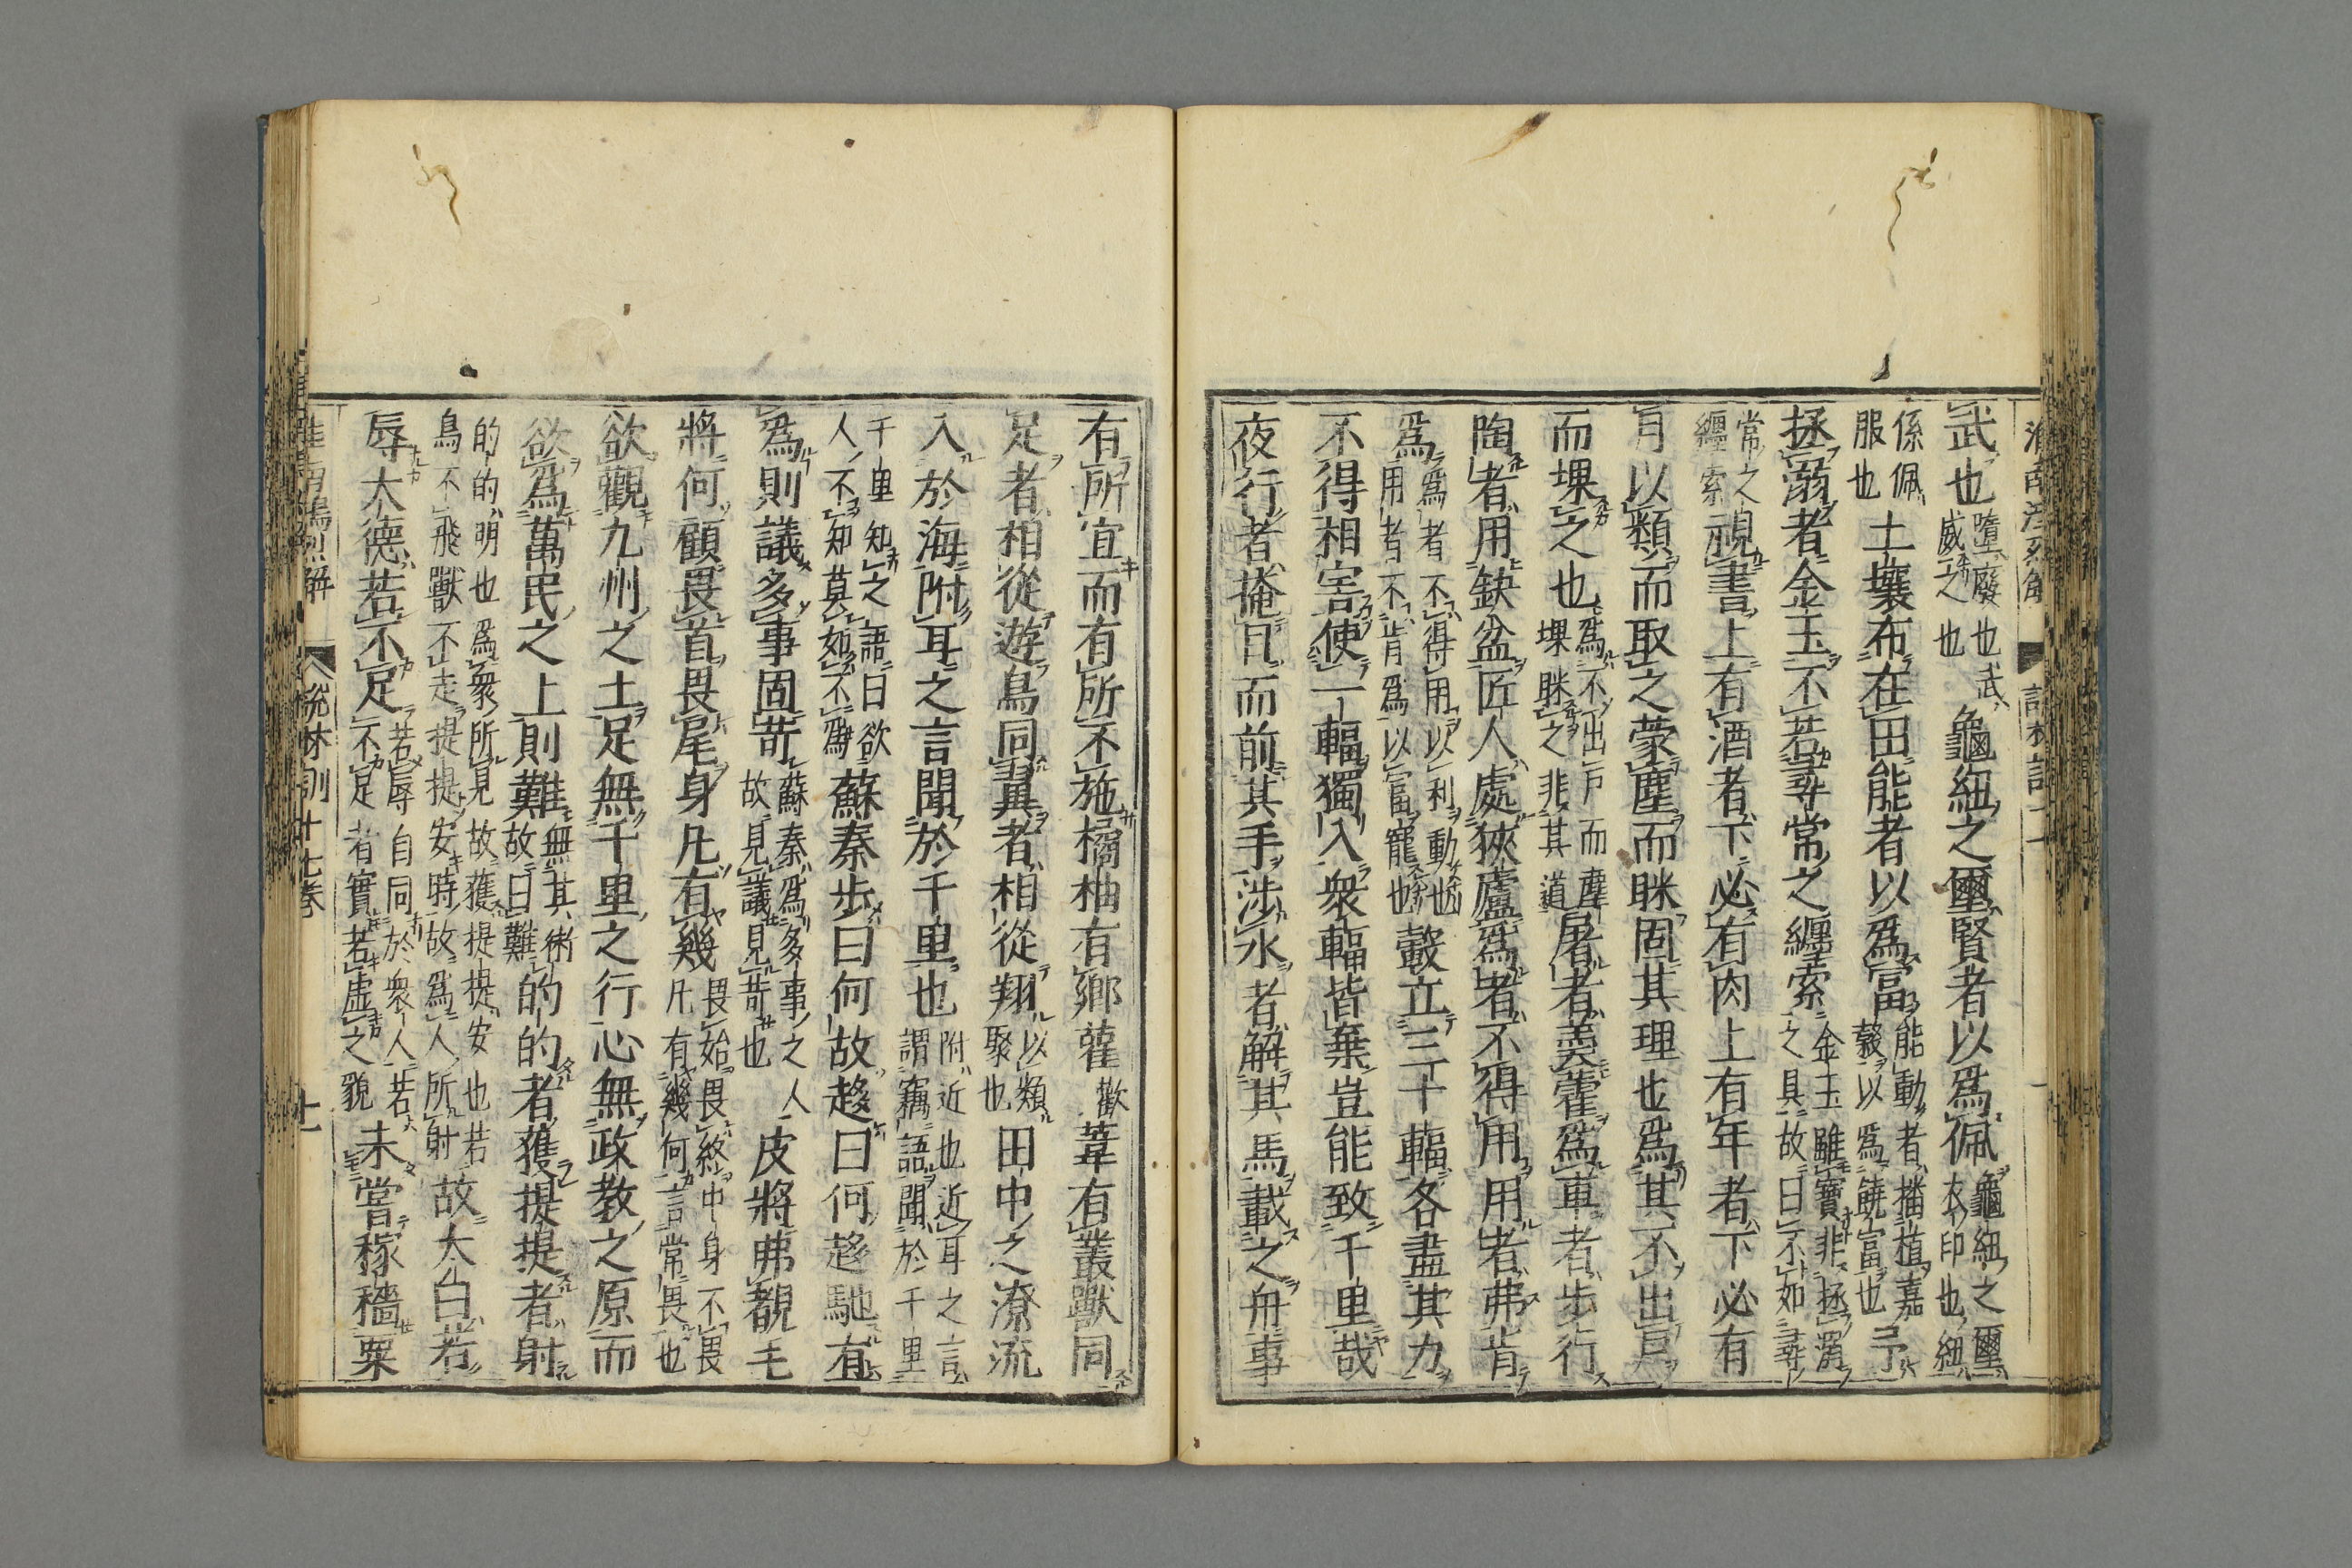 武也墮廢也武威之也龜紐之璽賢者以爲佩龜紐之璽衣印也紐
係佩服也土壤布在田能者以爲富能動者播植嘉穀以爲饒富也予
拯溺者金玉不若尋常之纏索金玉雖寶非拯溺之具故曰不如尋
常之纏索視書上有酒者下必有肉上有年者下必有
月以類而取之蒙塵而眯固其理也爲其不出戶
而堁之也爲不出戶而塵堁眯之非其道屠者羹藿爲車者步行
陶者用缺盆匠人處狹廬爲者不得用用者弗肯
爲爲者不得用以利動也用者不肯爲以富寵也轂立三十輻各盡其力
不得相害使一輻獨入衆輻皆棄豈能致千里哉
夜行者掩目而前其手涉水者解其馬載之舟事
有所宜而有所不施橘柚有鄉雚歡葦有叢獸同
足者相從遊鳥同翼者相從翔以類聚也田中之潦流
入於海附耳之言聞於千里也附近也近耳之言謂竊語聞於千里
千里知之語曰欲人不知莫如不爲蘇秦步曰何故趍曰何趍馳有
爲則議多事固苛蘇秦爲多事之人故見議見苛也皮將弗覩毛
將何顧畏首畏尾身凡有幾畏始畏終中身不畏凡有幾何言常畏也
欲觀九州之土足無千里之行心無政教之原而
欲爲萬民之上則難無其術故曰難的的者獲提提者射
的的明也爲衆所見故獲提提安也若鳥不飛獸不走提提安時故爲人所射故大白若
辱大德若不足若辱自同於衆人若不足者實若虛之貌未嘗稼穡粟
淮南鴻烈解 說林訓 十七卷 十一